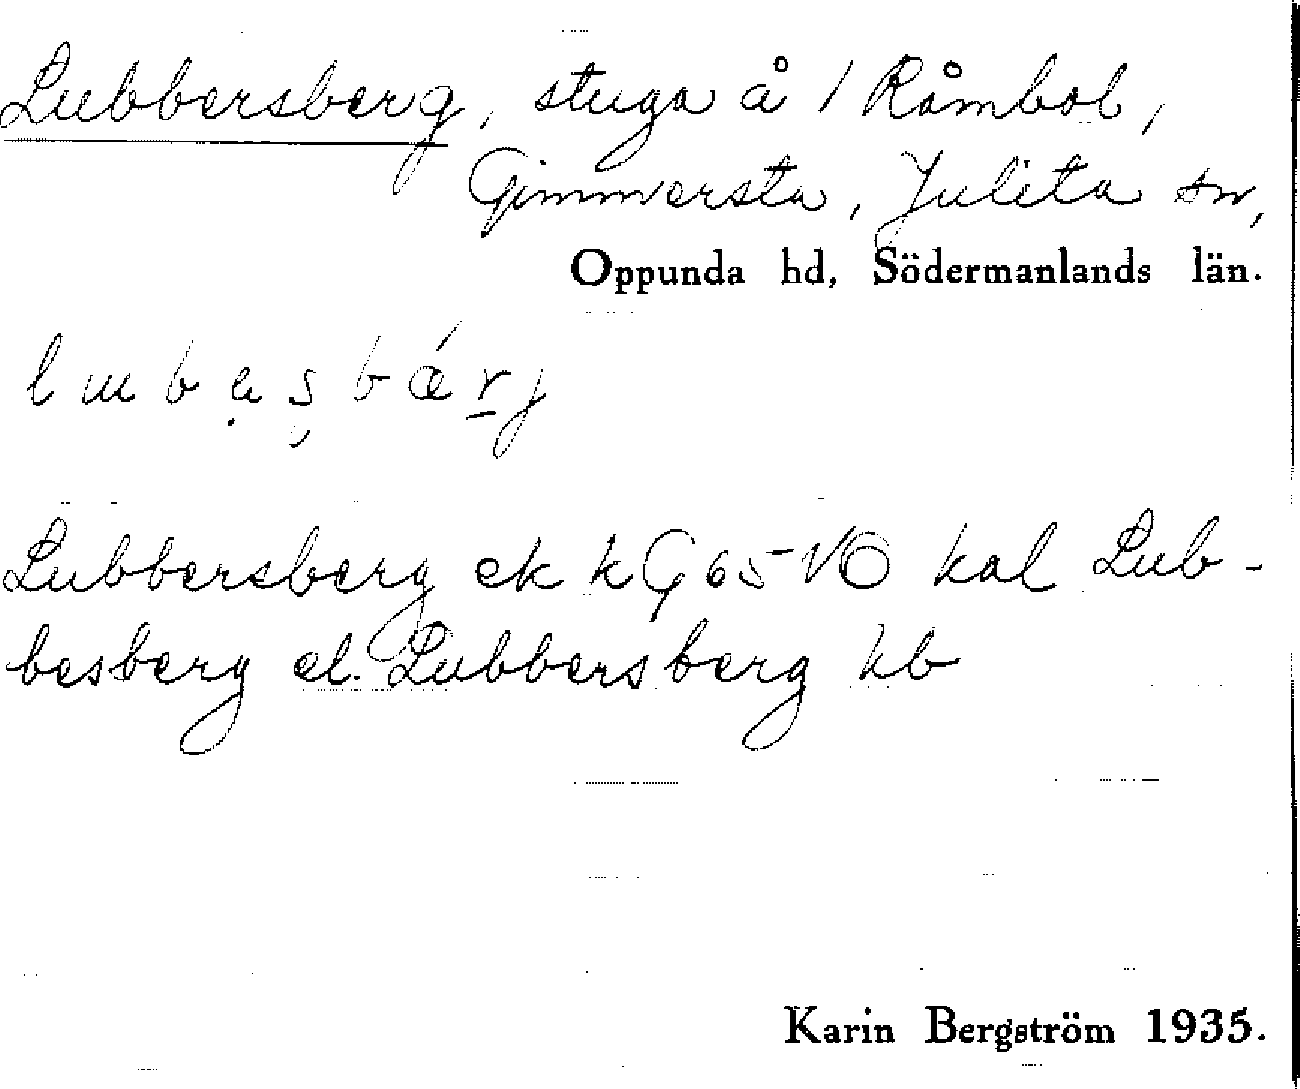 Lubbersberg, stuga å 1 Råmbol,
Gimmersta, Julita sn,
Oppunda hd, Södermanlands län.
Lubbersberg ek k G 65 VO kal Lub-
besberg el. Lubbersberg kb
Karin Bergström 1935.